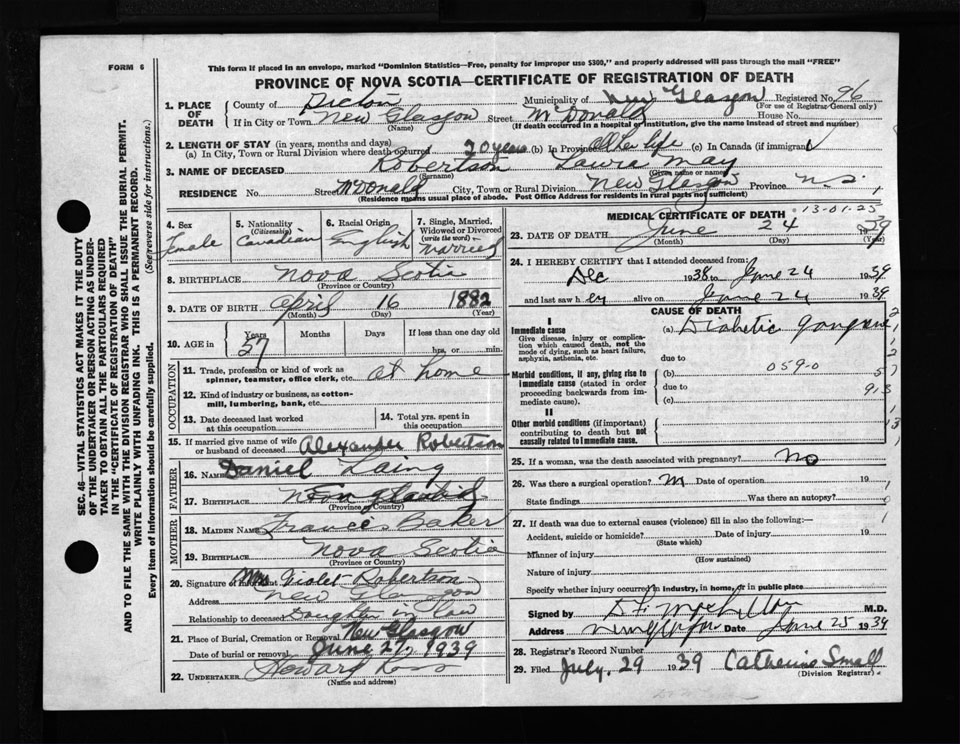 FORM 6
This form if placed in an envelope, marked "Dominion Statistics—Free, penalty for improper use $300," and properly addressed will pass through the mail "FREE"
PROVINCE OF NOVA SCOTIA—CERTIFICATE OF REGISTRATION OF DEATH
SEC. 46—VITAL STATISTICS ACT MAKES IT THE DUTY
OF THE UNDERTAKER OR PERSON ACTING AS UNDER-
TAKER TO OBTAIN ALL THE PARTICULARS REQUIRED
IN THE "CERTIFICATE OF REGISTRATION OF DEATH"
AND TO FILE THE SAME WITH THE DIVISION REGISTRAR WHO SHALL ISSUE THE BURIAL PERMIT.
WRITE PLAINLY WITH UNFADING INK. THIS IS A PERMANENT RECORD.
Every item of information should be carefully supplied. (See reverse side for instructions.)
1. PLACE OF DEATH
County of Pictou Municipality of New Glasgow Registered No. 96
(For use of Registrar General only)
If in City or Town New Glasgow Street McDonald House No.
(Name) (If death occurred in a hospital or institution, give the name instead of street and number)
2. LENGTH OF STAY (in years, months and days)
(a) In City, Town or Rural Division where death occurred 20 years (b) In Province All her life (c) In Canada (if immigrant)
3. NAME OF DECEASED Robertson Laura May
(Surname) (Given name or names)
RESIDENCE No. Street McDonald City, Town or Rural Division New Glasgow Province N.S.
(Residence means usual place of abode. Post Office Address for residents in rural parts not sufficient)
4. Sex Female
5. Nationality (Citizenship) Canadian
6. Racial Origin English
7. Single, Married, Widowed or Divorced (write the word) Married
8. BIRTHPLACE Nova Scotia
(Province or Country)
9. DATE OF BIRTH April 16 1882
(Month) (Day) (Year)
10. AGE in Years Months Days If less than one day old
57 hrs. or min.
OCCUPATION
11. Trade, profession or kind of work as spinner, teamster, office clerk, etc. at home
12. Kind of industry or business, as cotton-mill, lumbering, bank, etc.
13. Date deceased last worked at this occupation
14. Total yrs. spent in this occupation
15. If married give name of wife or husband of deceased Alexander Robertson
FATHER
16. NAME Daniel Laing
17. BIRTHPLACE Nova Scotia
(Province or Country)
MOTHER
18. MAIDEN NAME Frances Baker
19. BIRTHPLACE Nova Scotia
(Province or Country)
20. Signature of Informant Mrs Violet Robertson
Address New Glasgow
Relationship to deceased Daughter in law
21. Place of Burial, Cremation or Removal New Glasgow
Date of burial or removal June 27, 1939
22. UNDERTAKER Howard Ross
(Name and address)
MEDICAL CERTIFICATE OF DEATH
13-01-25
23. DATE OF DEATH June 24 1939
(Month) (Day) (Year)
24. I HEREBY CERTIFY that I attended deceased from:
Dec 1938 to June 24 1939
and last saw her alive on June 24 1939
CAUSE OF DEATH
I
Immediate cause (a) Diabetic gangrene
Give disease, injury or complication which caused death, not the mode of dying, such as heart failure, asphyxia, asthenia, etc.
due to
Morbid conditions, if any, giving rise to immediate cause (stated in order proceeding backwards from immediate cause). (b) 059-0
due to
(c)
II
Other morbid conditions (if important) contributing to death but not causally related to immediate cause.
25. If a woman, was the death associated with pregnancy? No
26. Was there a surgical operation? No Date of operation 19
State findings Was there an autopsy?
27. If death was due to external causes (violence) fill in also the following:—
Accident, suicide or homicide? Date of injury 19
(State which)
Manner of injury
(How sustained)
Nature of injury
Specify whether injury occurred in industry, in home, or in public place
Signed by M.D.
Address New Glasgow Date June 25 1939
28. Registrar's Record Number
29. Filed July. 29 1939 Catherine Small
(Division Registrar)